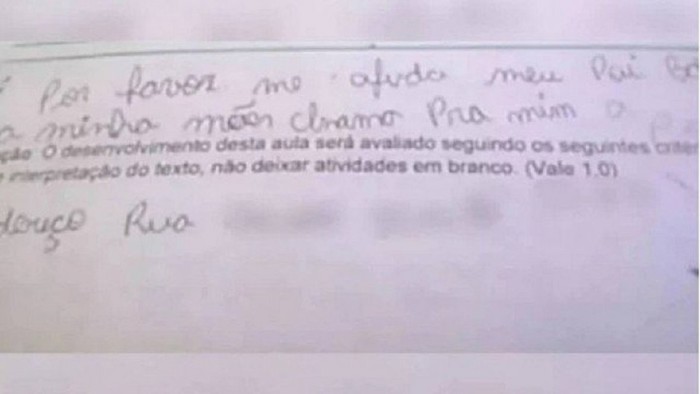 Por favor me ajuda meu Pai
a minha mãe chramo Pra mim a
ção O desenvolvimento desta aula será avaliado seguindo os seguintes crité
e interpretação do texto, não deixar atividades em branco. (Vale 1.0)
dereço Rua